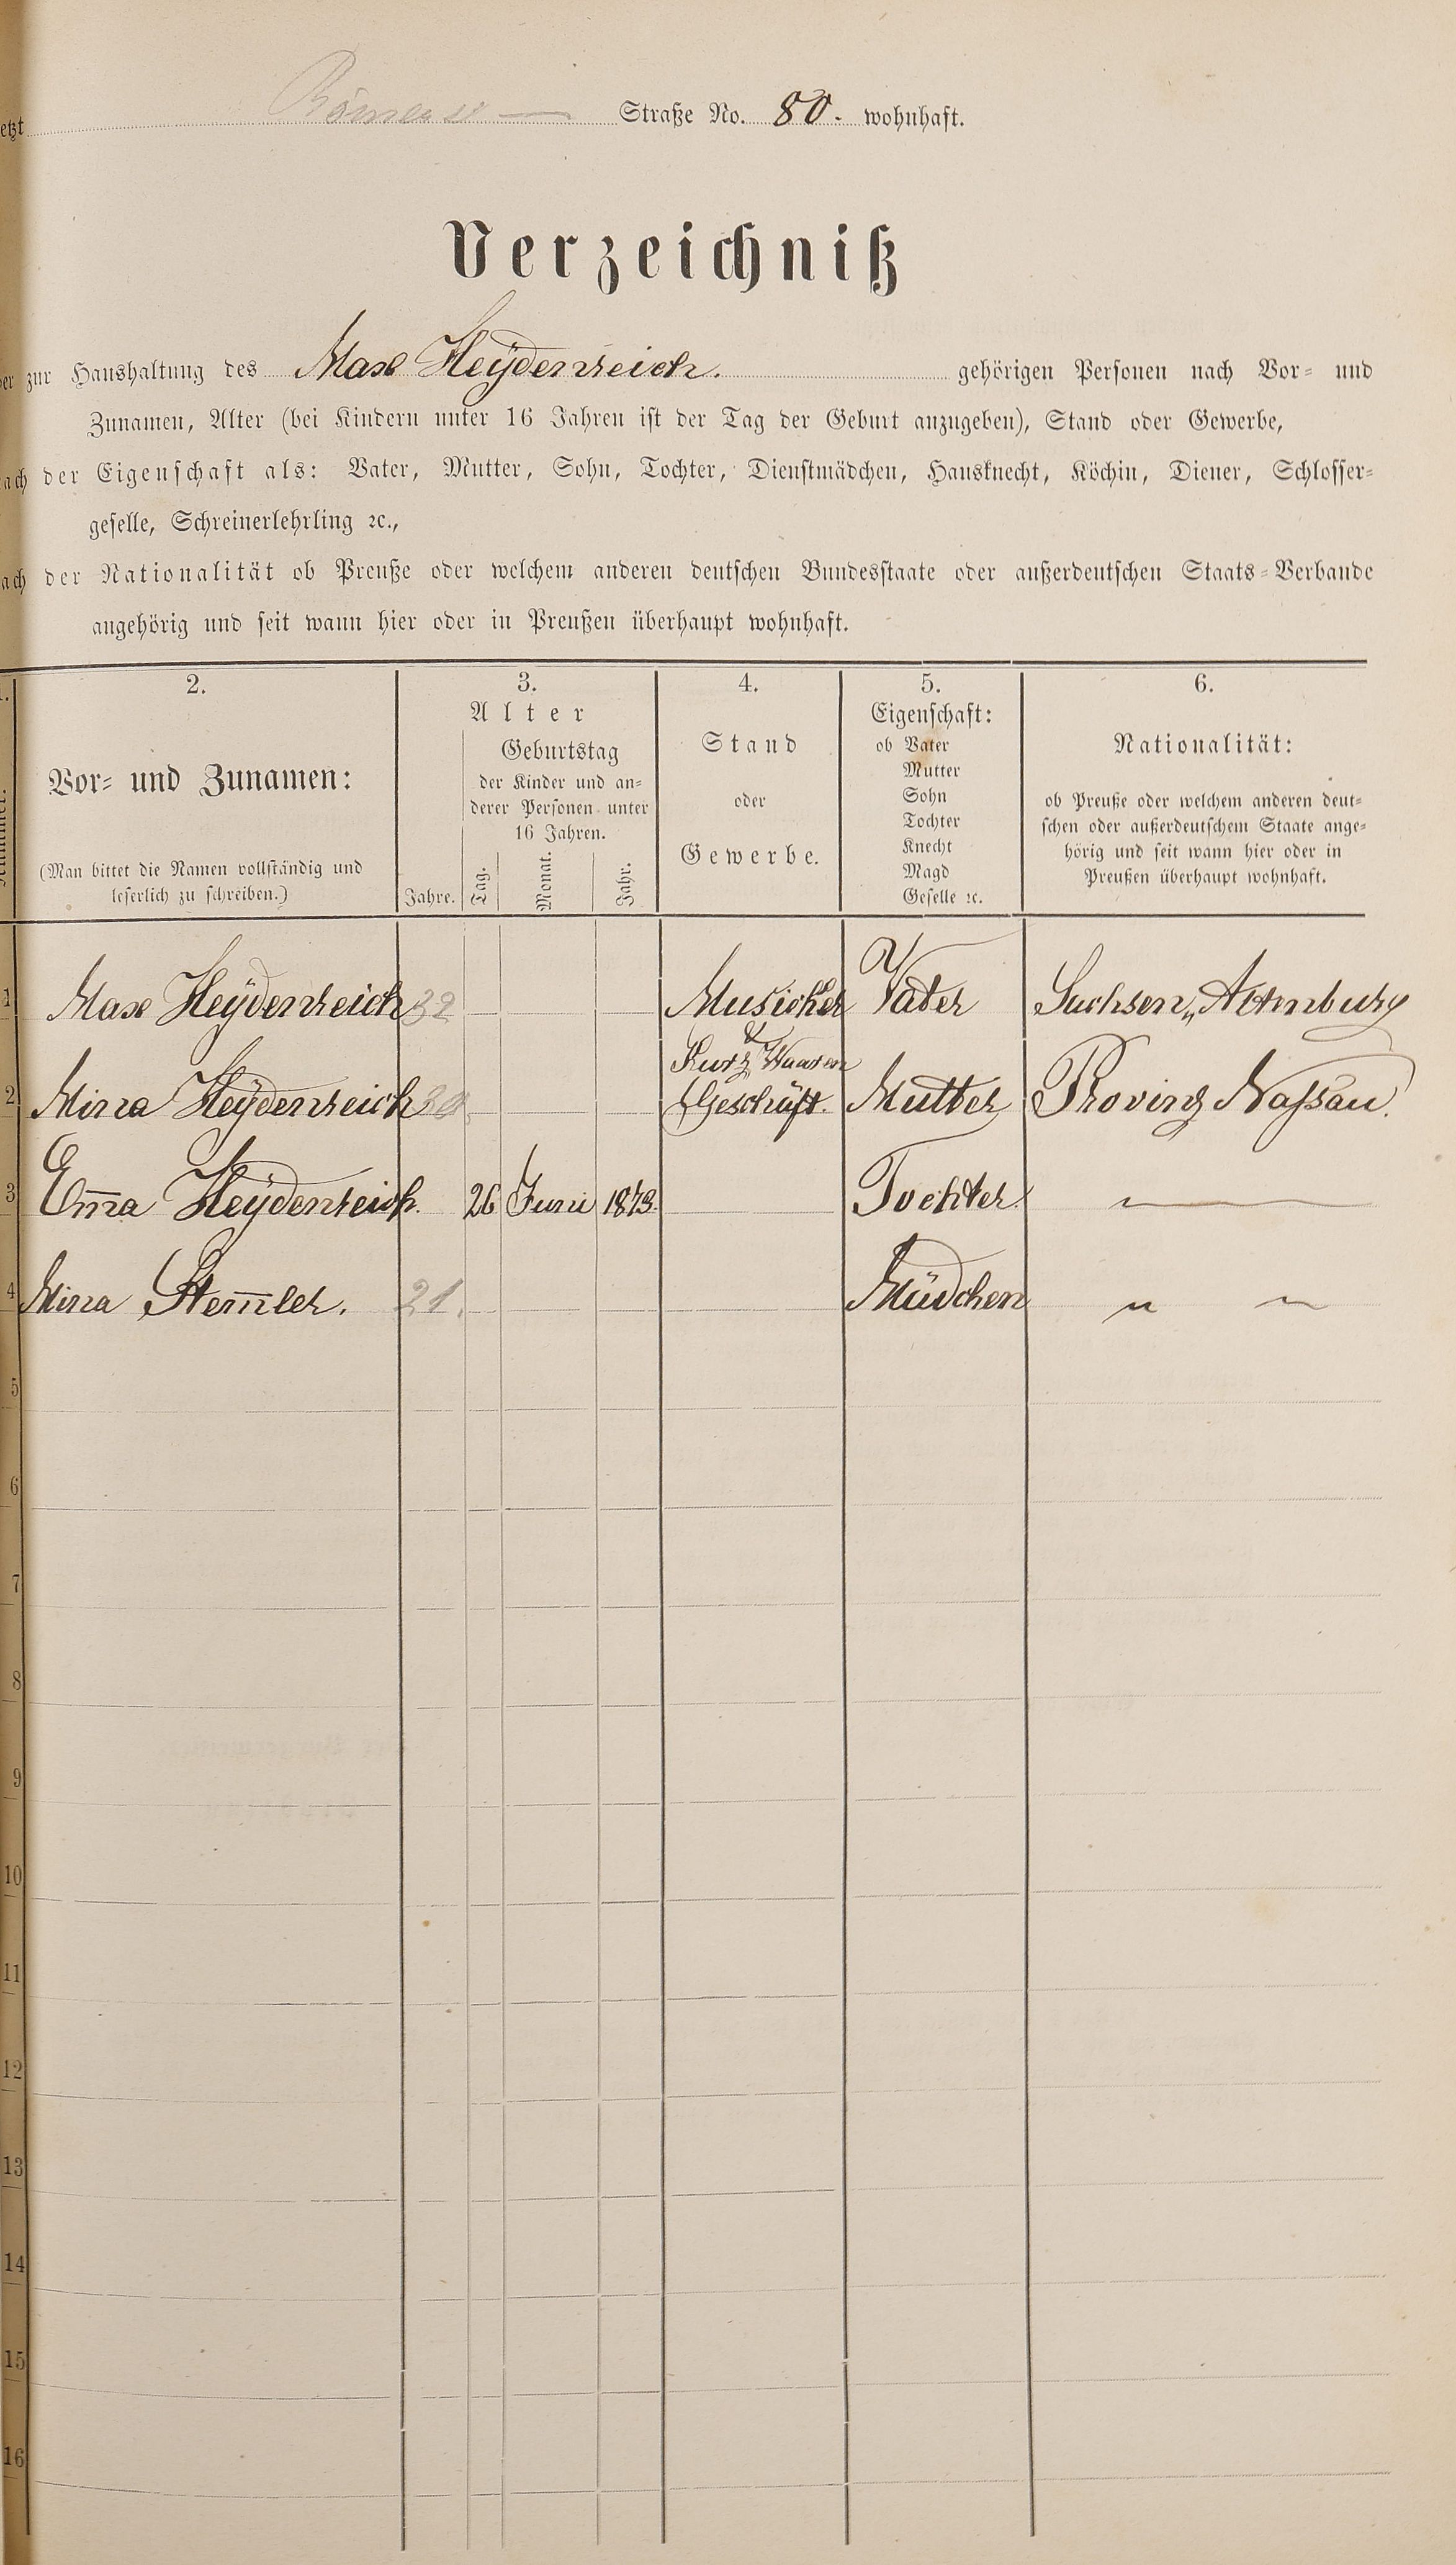 etzt Straße No. 80. wohnhaft.
Verzeichniß
er zur Haushaltung des Max Heÿdenreich. gehörigen Personen nach Vor- und
Zunamen, Alter (bei Kindern unter 16 Jahren ist der Tag der Geburt anzugeben), Stand oder Gewerbe,
ach der Eigenschaft als: Vater, Mutter, Sohn, Tochter, Dienstmädchen, Hausknecht, Köchin, Diener, Schlosser-
geselle, Schreinerlehrling ꝛc.,
ach der Nationalität ob Preuße oder welchem anderen deutschen Bundesstaate oder außerdeutschen Staats-Verbande
angehörig und seit wann hier oder in Preußen überhaupt wohnhaft.
1. 2. 3. 4. 5. 6.
Vor- und Zunamen:
(Man bittet die Namen vollständig und
leserlich zu schreiben.)
Alter
Geburtstag
der Kinder und an-
derer Personen unter
16 Jahren.
Jahre. Tag. Monat. Jahr.
Stand
oder
Gewerbe.
Eigenschaft:
ob Vater
Mutter
Sohn
Tochter
Knecht
Magd
Geselle ꝛc.
Nationalität:
ob Preuße oder welchem anderen deut-
schen oder außerdeutschem Staate ange-
hörig und seit wann hier oder in
Preußen überhaupt wohnhaft.
1 Max Heÿdenreich 32 Musicker Vater Sachsen„Altenburg
&
Kurz Waaren
2 Mina Heÿdenreich Geschäft. Mutter Provinz Nassau.
3 Em̅a Heÿdenreich. 26 Juni 1873. Tochter. —
4 Mina Stem̅ler. 21. Mädchen " "
5
6
7
8
9
10
11
12
13
14
15
16